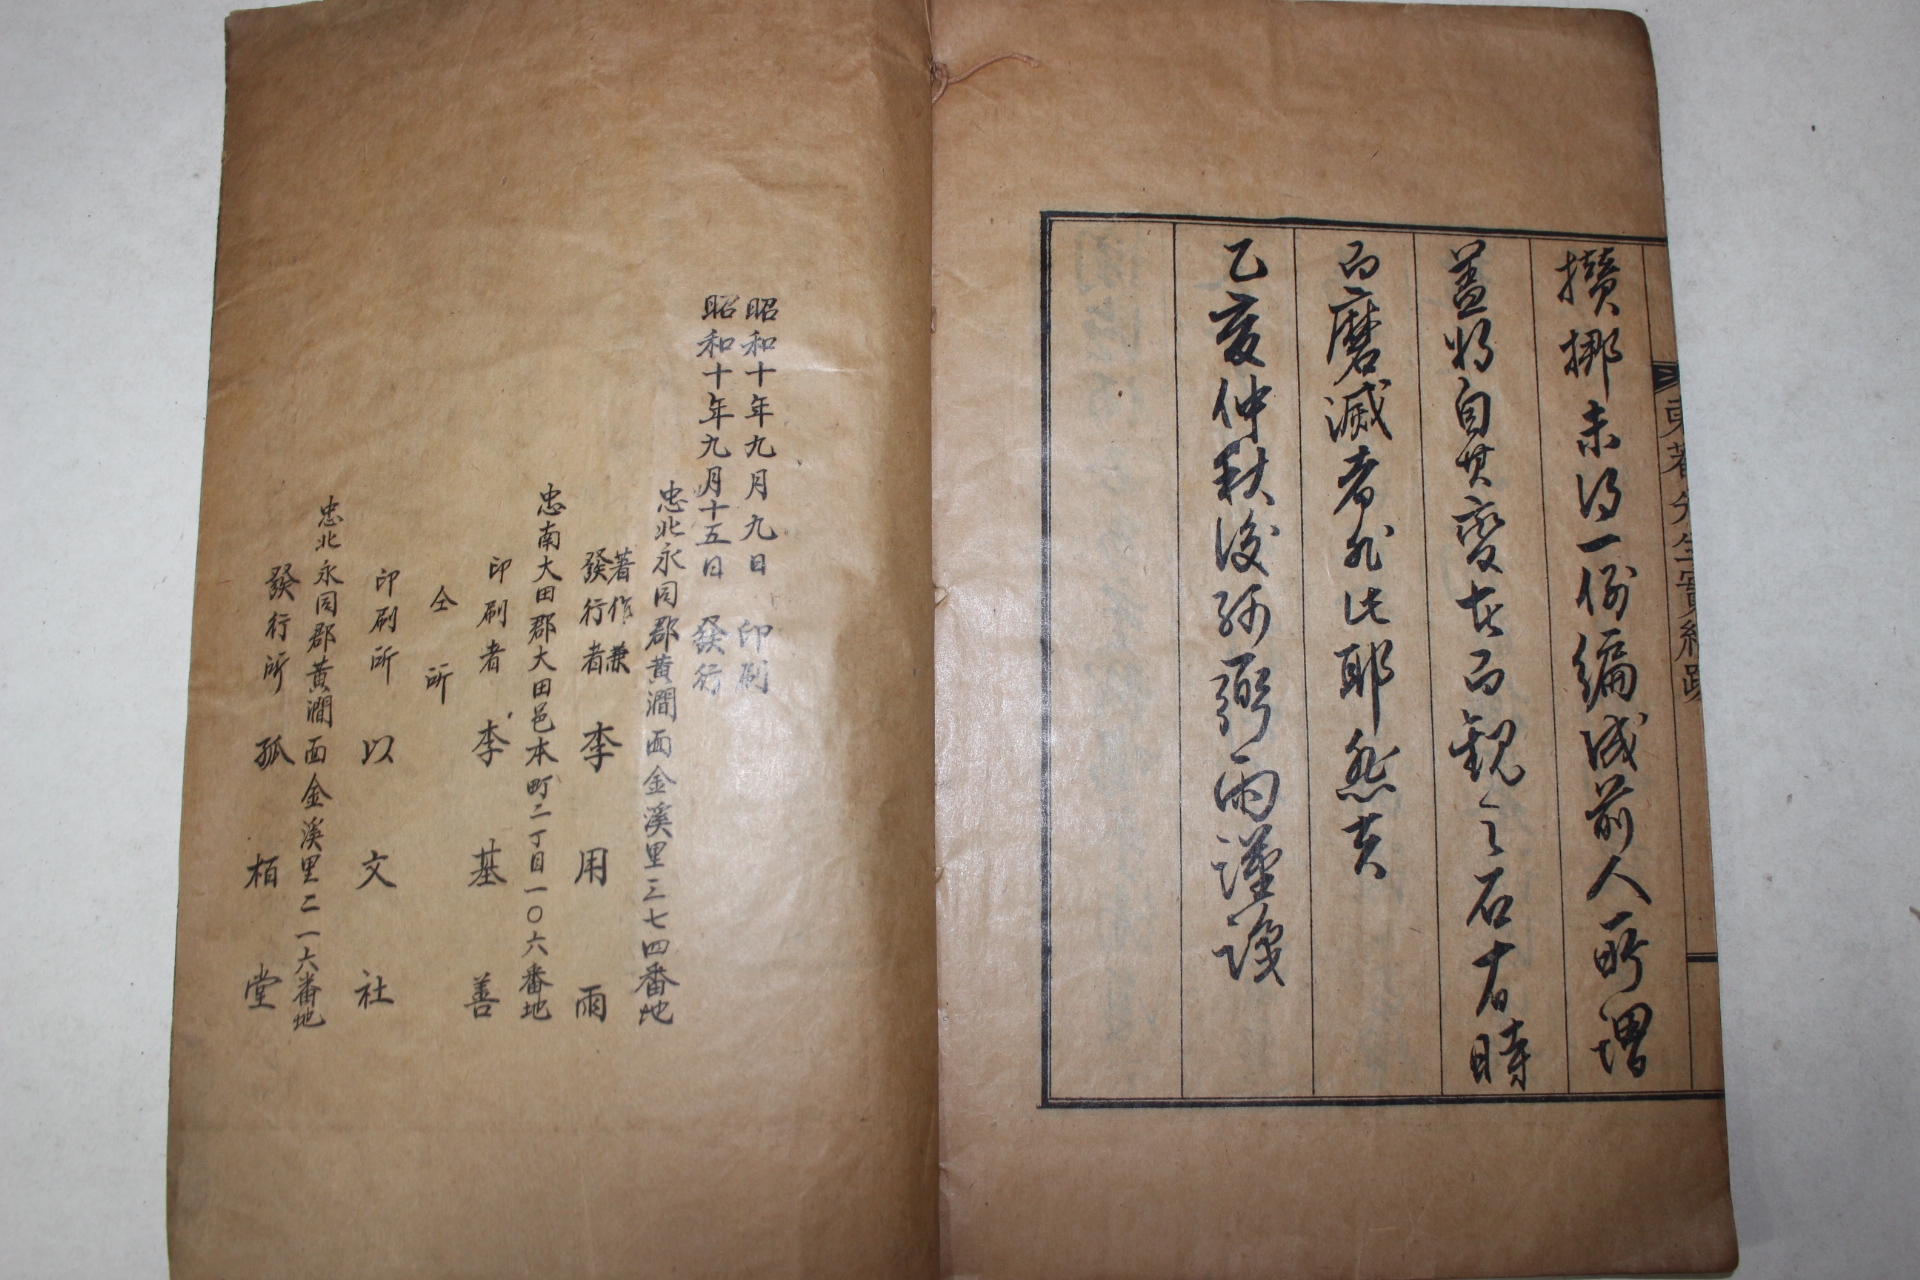 攢挪未得一例編成前人所謂
蓋將自其變者而觀之石有時
而磨滅者非此耶然矣
乙亥仲秋後孫弼雨謹識
先生實紀跋
昭和十年九月九日 印刷
昭和十年九月十五日 發行
忠北永同郡黃澗面金溪里三七四番地
著作兼
發行者 李用雨
忠南大田郡大田邑本町二丁目一〇六番地
印刷者 李基善
仝所
印刷所 以文社
忠北永同郡黃澗面金溪里二一六番地
發行所 孤栢堂